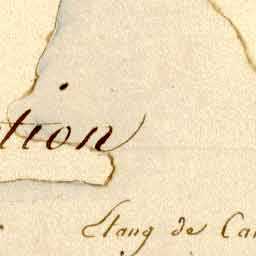 tion
Etang de Can